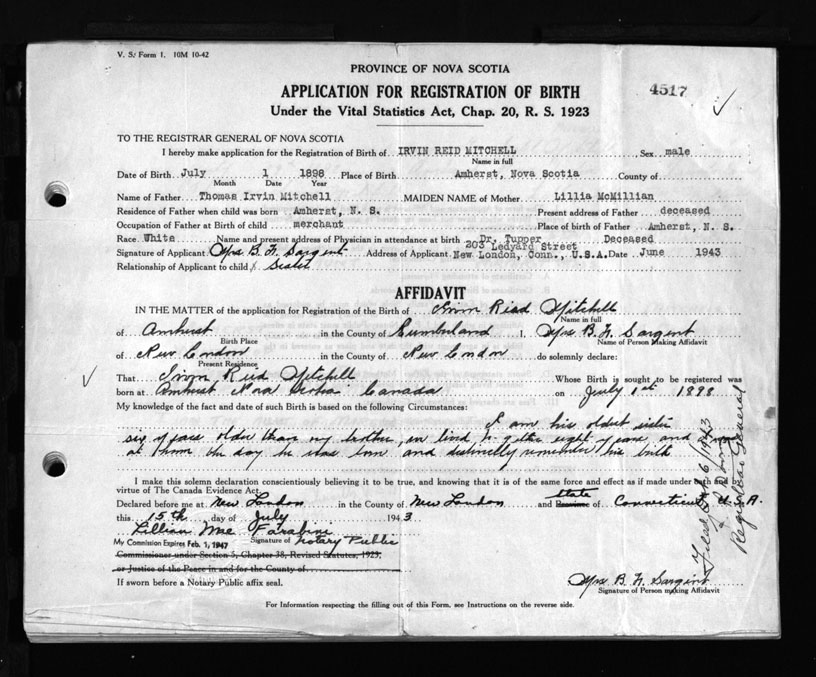 V. S. Form 1. 10M 10-42
PROVINCE OF NOVA SCOTIA
4517
APPLICATION FOR REGISTRATION OF BIRTH
Under the Vital Statistics Act, Chap. 20, R. S. 1923
TO THE REGISTRAR GENERAL OF NOVA SCOTIA
I hereby make application for the Registration of Birth of IRVIN REID MITCHELL Sex male
Name in full
Date of Birth July 1 1898 Place of Birth Amherst, Nova Scotia County of
Month Date Year
Name of Father Thomas Irvin Mitchell MAIDEN NAME of Mother Lillia McMillian
Residence of Father when child was born Amherst, N. S. Present address of Father deceased
Occupation of Father at Birth of child merchant Place of birth of Father Amherst, N. S.
Race White Name and present address of Physician in attendance at birth Dr. Tupper Deceased
203 Ledyard Street
Signature of Applicant Mrs B. H. Sargent Address of Applicant New London, Conn., U.S.A. Date June 1943
Relationship of Applicant to child Sister
AFFIDAVIT
IN THE MATTER of the application for Registration of the Birth of Irvin Reid Mitchell
Name in full
of Amherst in the County of Cumberland I, Mrs B. H. Sargent
Birth Place Name of Person Making Affidavit
of New London in the County of New London do solemnly declare:
Present Residence
That Irvin Reid Mitchell Whose Birth is sought to be registered was
born at Amherst Nova Scotia Canada on July 1st 1898
My knowledge of the fact and date of such Birth is based on the following Circumstances:
I am his oldest sister
six years older than my brother, we lived together eight years and
at home the day he was born and distinctly remember his birth
I make this solemn declaration conscientiously believing it to be true, and knowing that it is of the same force and effect as if made under oath by
virtue of The Canada Evidence Act.
Declared before me at New London in the County of New London and State of Connecticut, U.S.A.
this 15th day of July 1943
Lillian Mae
My Commission Expires Feb. 1, 1947 Signature of Notary Public
Commissioner under Section 5, Chapter 38, Revised Statutes, 1923,
or Justice of the Peace in and for the County of
If sworn before a Notary Public affix seal.
Mrs B. H. Sargent
Signature of Person making Affidavit
For Information respecting the filling out of this Form, see Instructions on the reverse side.
Filed 6/1943
Registrar General